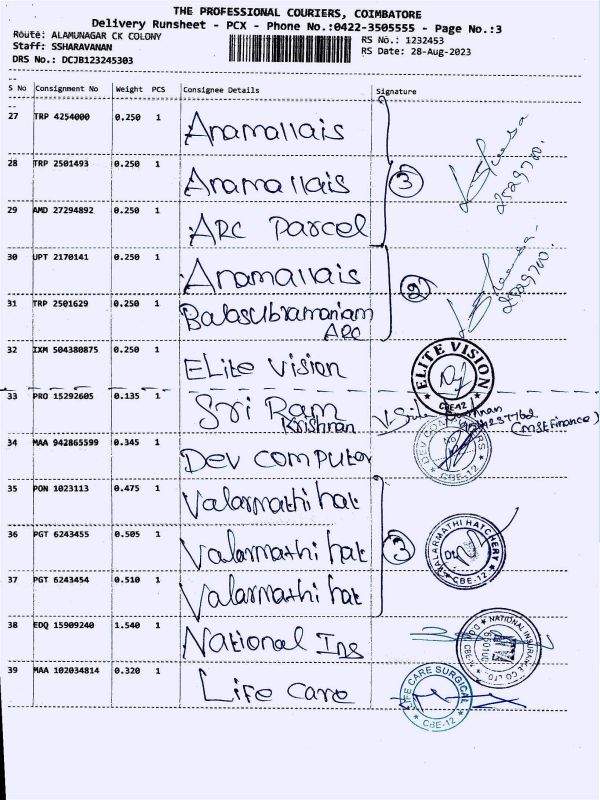 THE PROFESSIONAL COURIERS, COIMBATORE
Delivery Runsheet - PCX - Phone No.:0422-3505555 - Page No.:3
Route: ALAMUNAGAR CK COLONY
RS No.: 1232453
Staff: SSHARAVANAN
RS Date: 28-Aug-2023
DRS No.: DCJB123245303
S No Consignment No Weight PCS Consignee Details Signature
27 TRP 4254000 0.250 1 Anamallais
28 TRP 2501493 0.250 1 Anamallais 3
29 AMD 27294892 0.250 1 ARC Parcel
30 UPT 2170141 0.250 1 Anamallais 2
31 TRP 2501629 0.250 1 Balasubramaniam
ARC
32 IXM 504380875 0.250 1 Elite Vision ELITE VISION CBE-12
33 PRO 15292605 0.135 1 Sri Ram
Krishnan
34 MAA 942865599 0.345 1 Dev computer DEV COMPUTERS CBE-12
35 PON 1023113 0.475 1 Valarmathi hat
36 PGT 6243455 0.505 1 Valarmathi hat 3 VALARMATHI HATCHERY CBE-12
37 PGT 6243454 0.510 1 Valarmathi hat
38 EDQ 15909240 1.540 1 National Ins NATIONAL INSURANCE CO LTD
39 MAA 102034814 0.320 1 Life Care LIFE CARE SURGICAL CBE-12